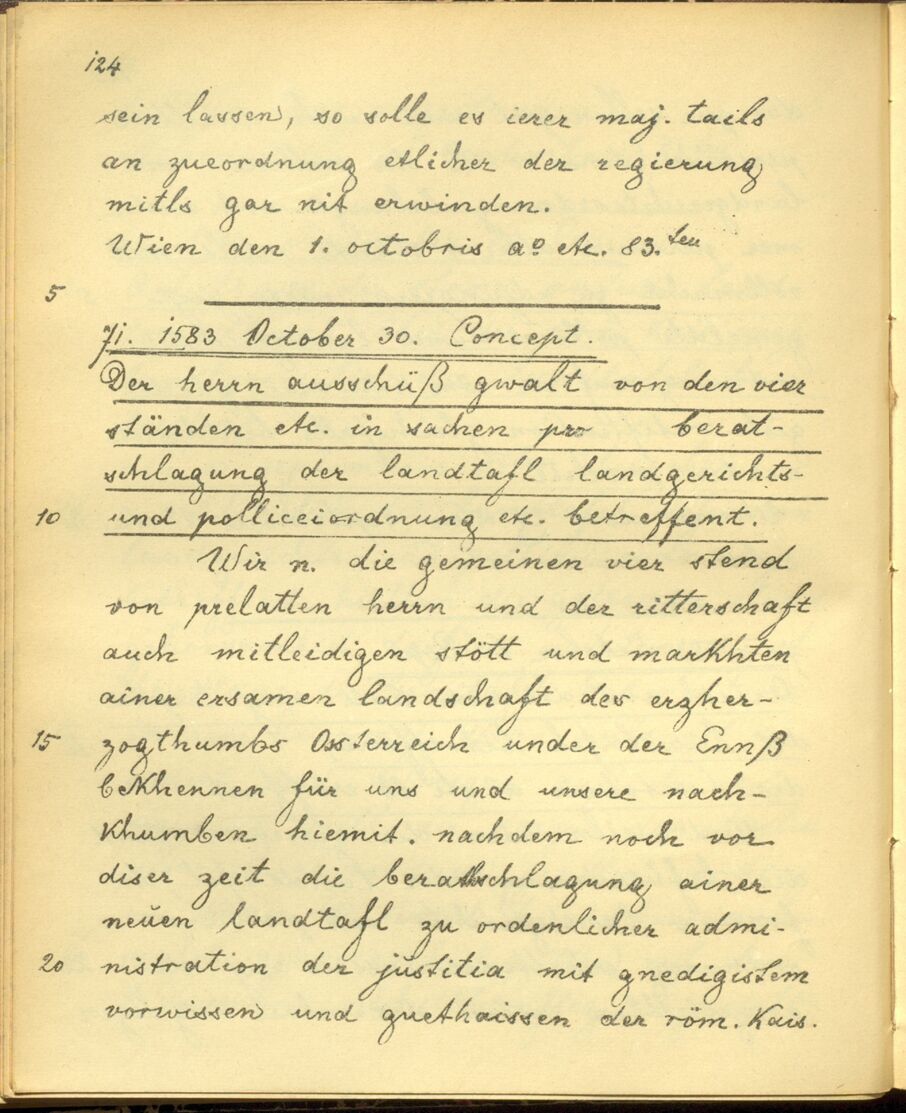 124
sein lassen, so solle es ierer maj. tails
an zueordnung etlicher der regierung
mitls gar nit erwinden.
Wien den 1. octobris aº etc. 83.ten
5
71. 1583 October 30. Concept.
Der herrn ausschüß gwalt von den vier
ständen etc. in sachen pro berat-
schlagung der landtafl landgerichts-
10 und polliceiordnung etc. betreffent.
Wir n. die gemeinen vier stend
von prelatten herrn und der ritterschaft
auch mitleidigen stött und markhten
ainer ersamen landschaft des erzher-
15 zogthumbs Össterreich under der Ennß
bekhennen für uns und unsere nach-
khumben hiemit. nachdem noch vor
diser zeit die beratschlagung ainer
neuen landtafl zu ordenlicher admi-
20 nistration der justitia mit gnedigistem
vorwissen und guethaissen der röm. kais.